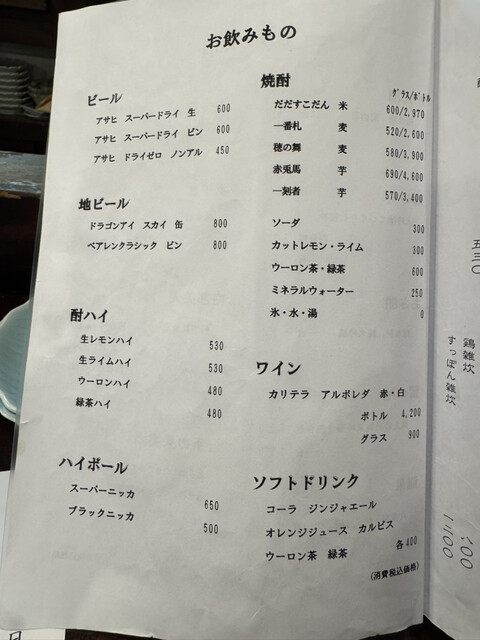 お飲みもの
ビール
アサヒ スーパードライ 生 600
アサヒ スーパードライ ビン 600
アサヒ ドライゼロ ノンアル 450
地ビール
ドラゴンアイ スカイ 缶 800
ベアレンクラシック ビン 800
酎ハイ
生レモンハイ 530
生ライムハイ 530
ウーロンハイ 480
緑茶ハイ 480
ハイボール
スーパーニッカ 650
ブラックニッカ 500
焼酎
グラス/ボトル
だだすこだん 米 600/2,970
一番札 麦 520/2,600
穂の舞 麦 580/3,900
赤兎馬 芋 690/4,600
一刻者 芋 570/3,400
ソーダ 300
カットレモン・ライム 300
ウーロン茶・緑茶 600
ミネラルウォーター 250
氷・水・湯 0
ワイン
カリテラ アルボレダ 赤・白
ボトル 4,200
グラス 900
ソフトドリンク
コーラ ジンジャエール
オレンジジュース カルピス
ウーロン茶 緑茶 各400
(消費税込価格)
五三〇
鶏雑炊
すっぽん雑炊